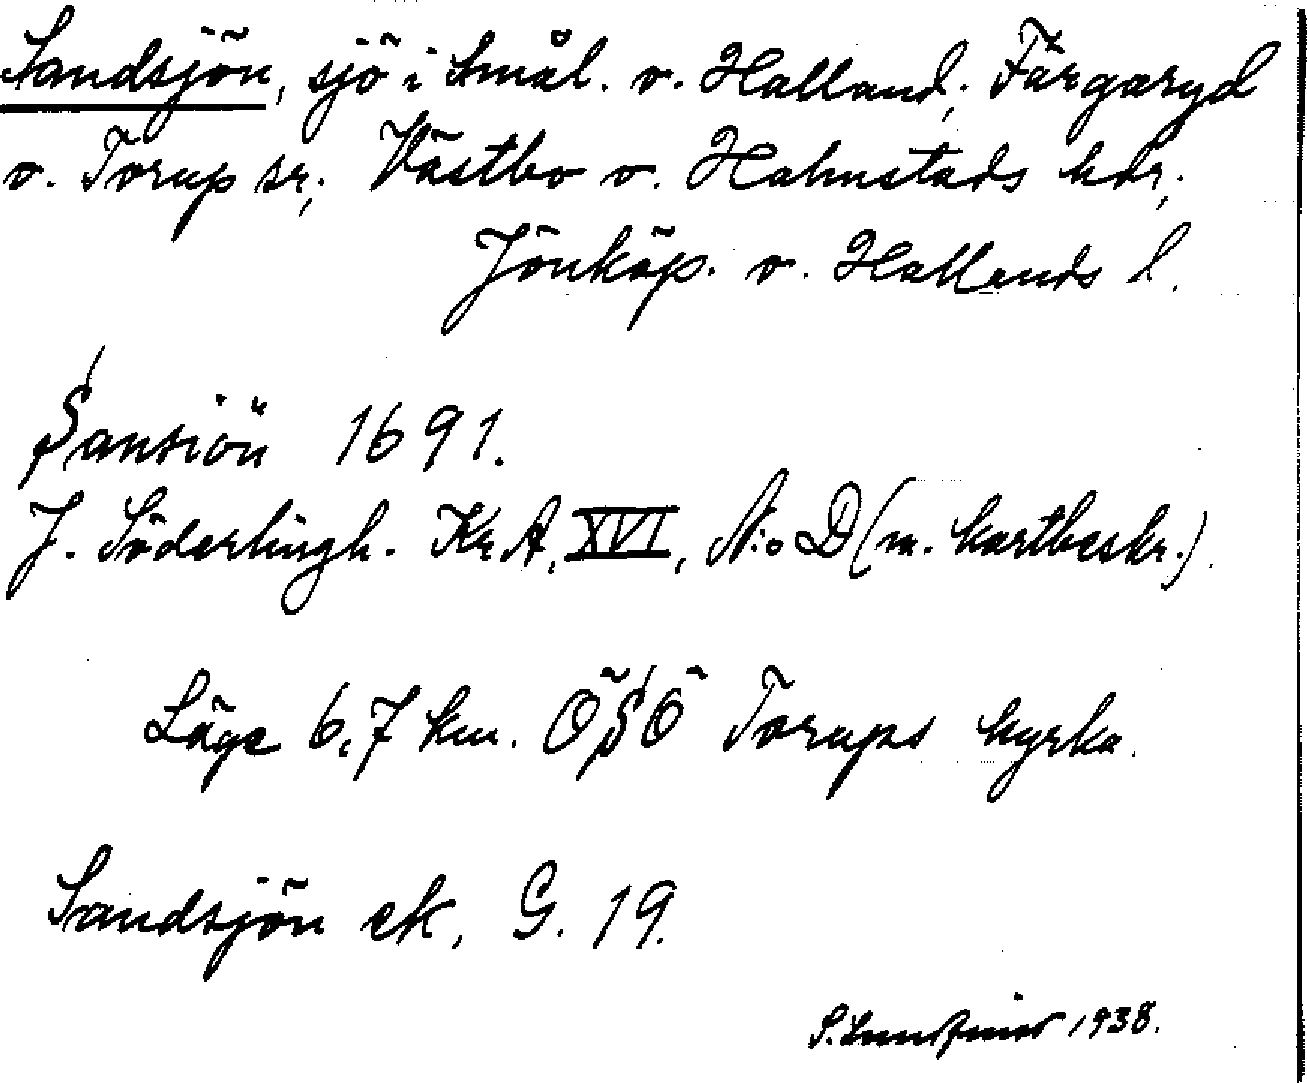 Sandsjön, sjö i Smål. o. Halland; Färgaryd
o. Torup sr; Västbo o. Halmstads hdr;
Jönköp. o. Hallands l.
Sansiön 1691.
J. Söderlingh. Kr.A, XVI, N:o D (m. kartbeskr.).
Läge 6,7 km. ÖSÖ Torups kyrka.
Sandsjön ek. G. 19.
S. 1938.